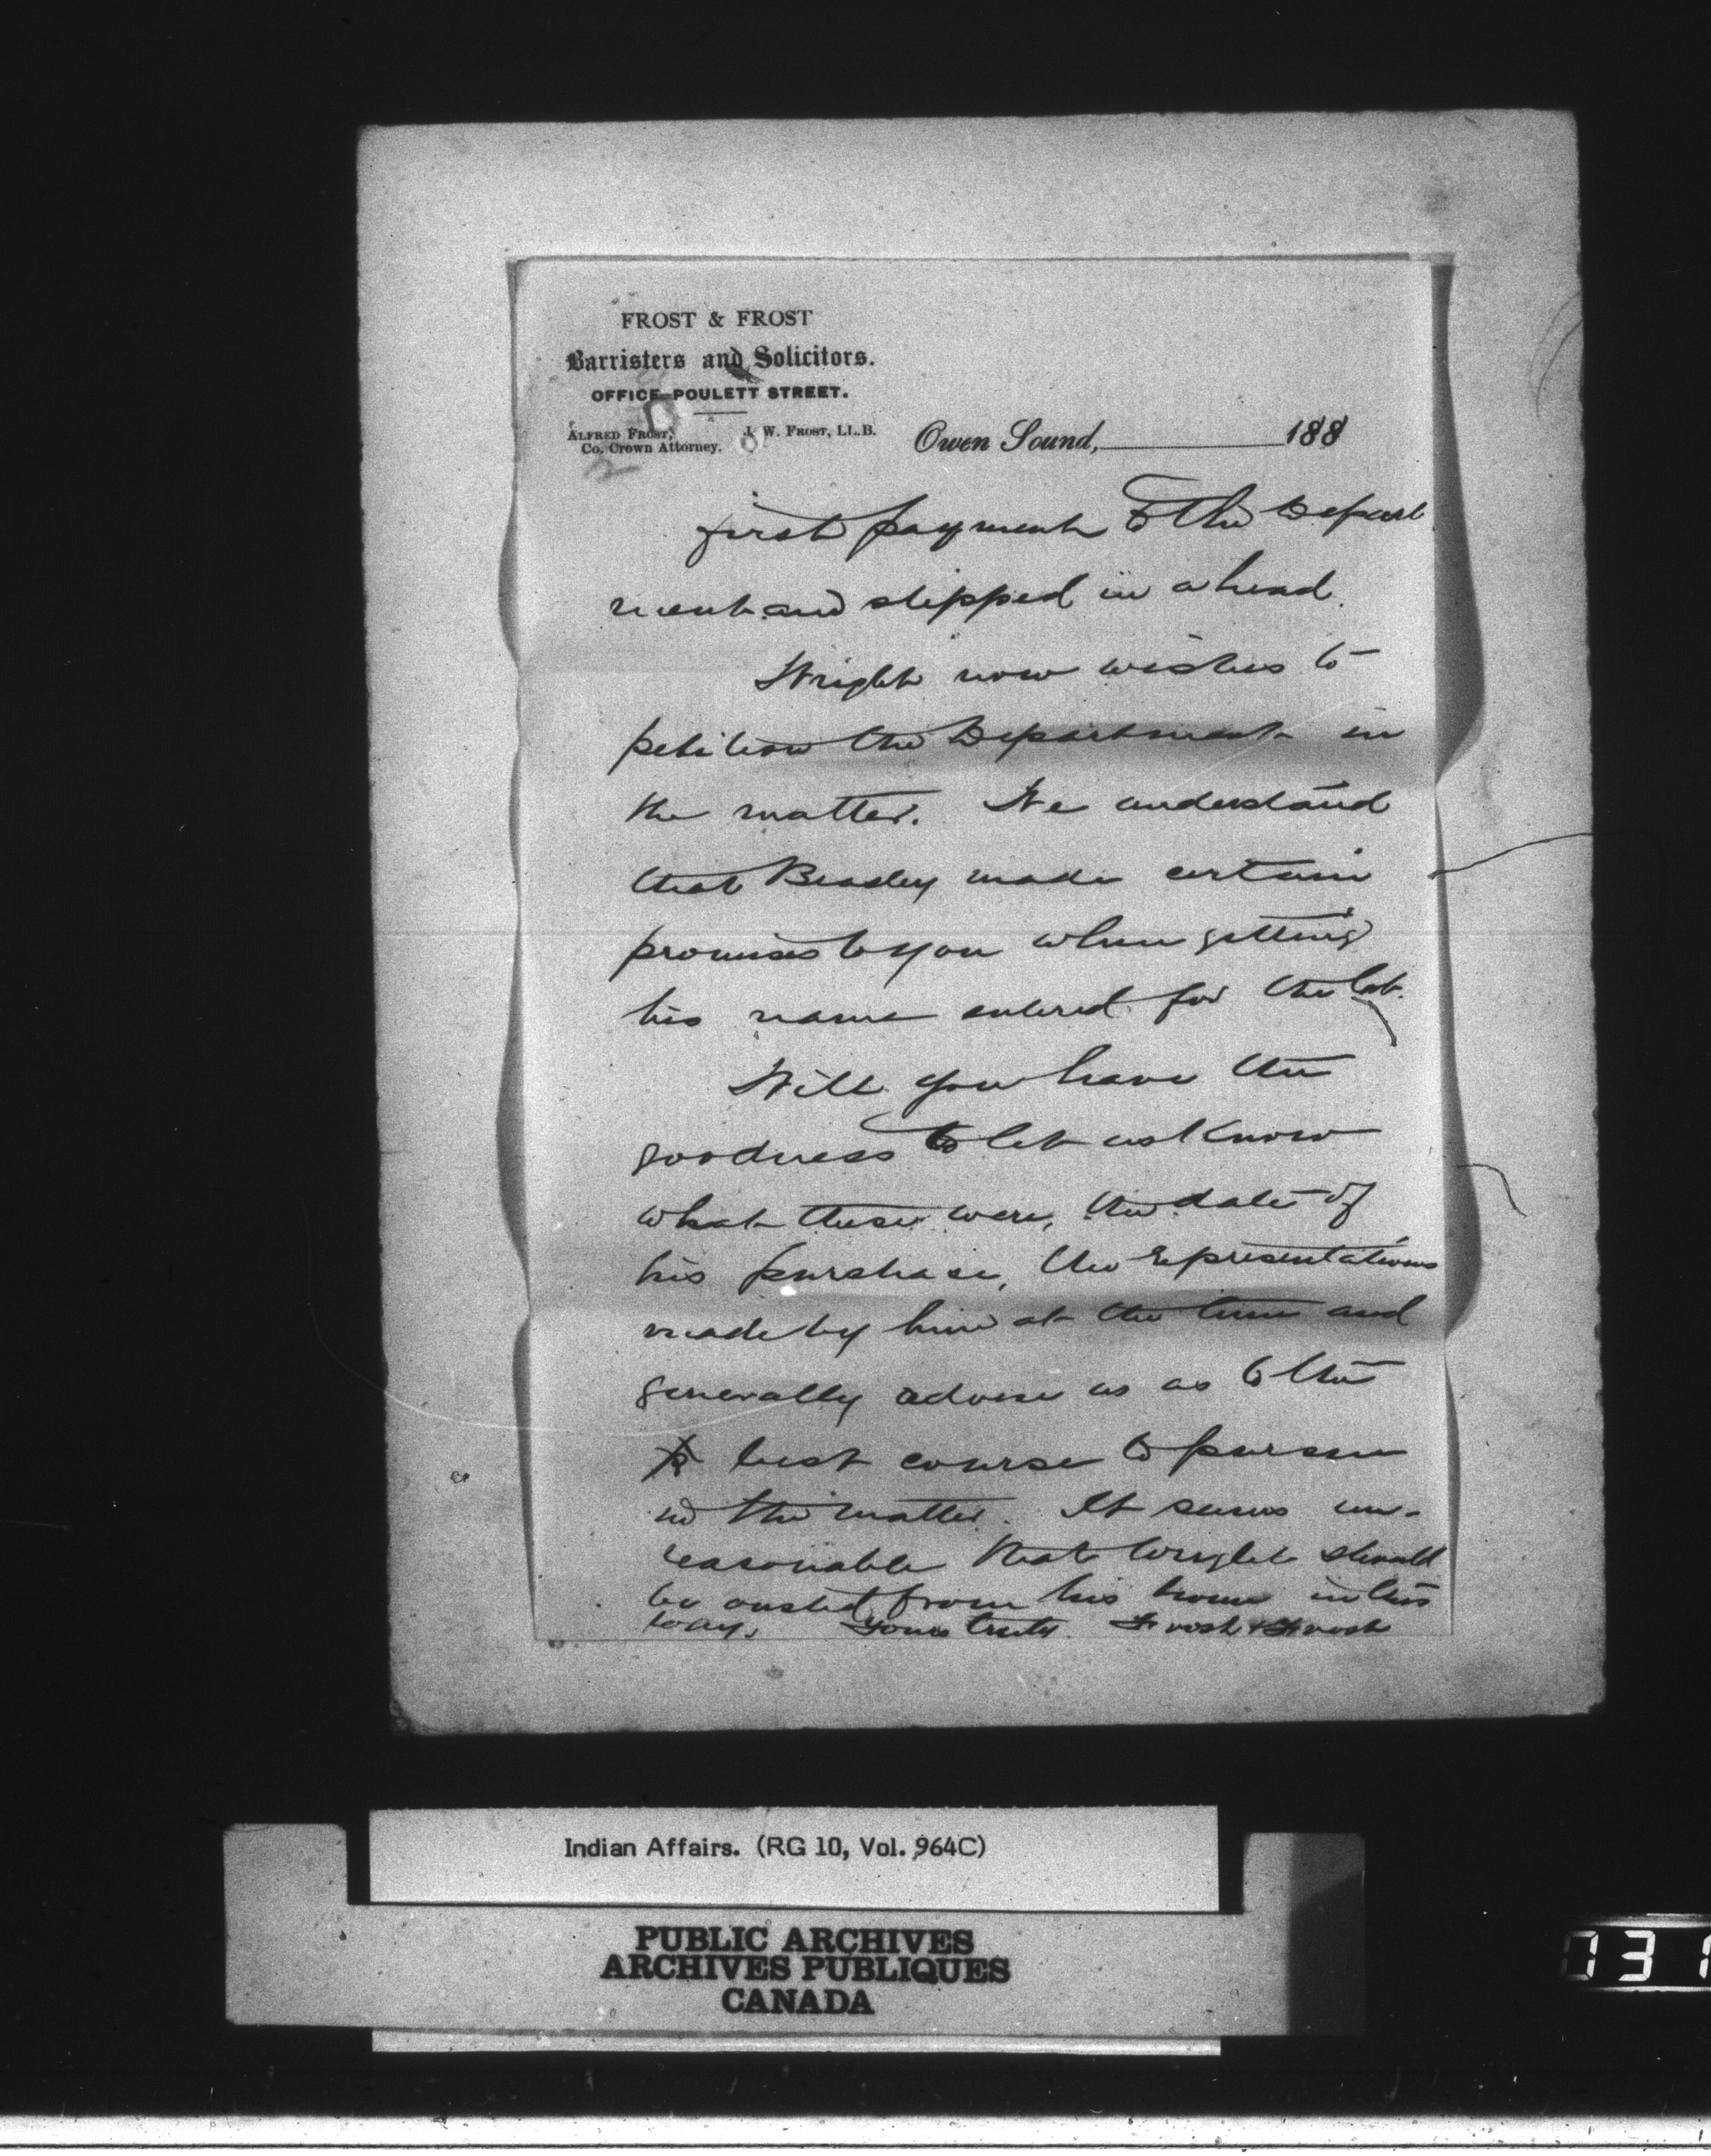 FROST & FROST
Barristers and Solicitors.
OFFICE—POULETT STREET.
ALFRED FROST, J. W. FROST, LL.B.
Co. Crown Attorney.
Owen Sound, 188
first payment to the Depart
ment and slipped in ahead.
Wright now wishes to
petition the Department in
the matter. We understand
that Beasley made certain
promises to you when getting
his name entered for the lot.
Will you have the
goodness to let us know
what these were, the date of
his purchase, the representations
made by him at the time and
generally advise us as to the
best course to pursue
in the matter. It seems un-
reasonable that Wright should
be ousted from his home in this
way. Yours truly Frost & Frost
Indian Affairs. (RG 10, Vol. 964C)
PUBLIC ARCHIVES
ARCHIVES PUBLIQUES
CANADA
031